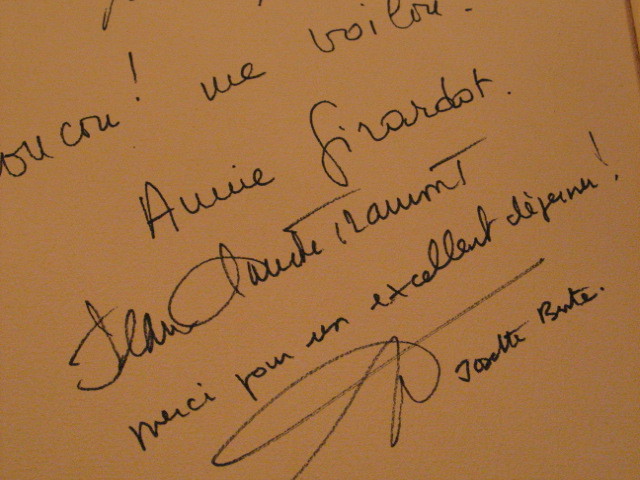 oucou! me voilou.
Annie Girardot.
Jean Claude
merci pour un excellent déjeuner!
Josette